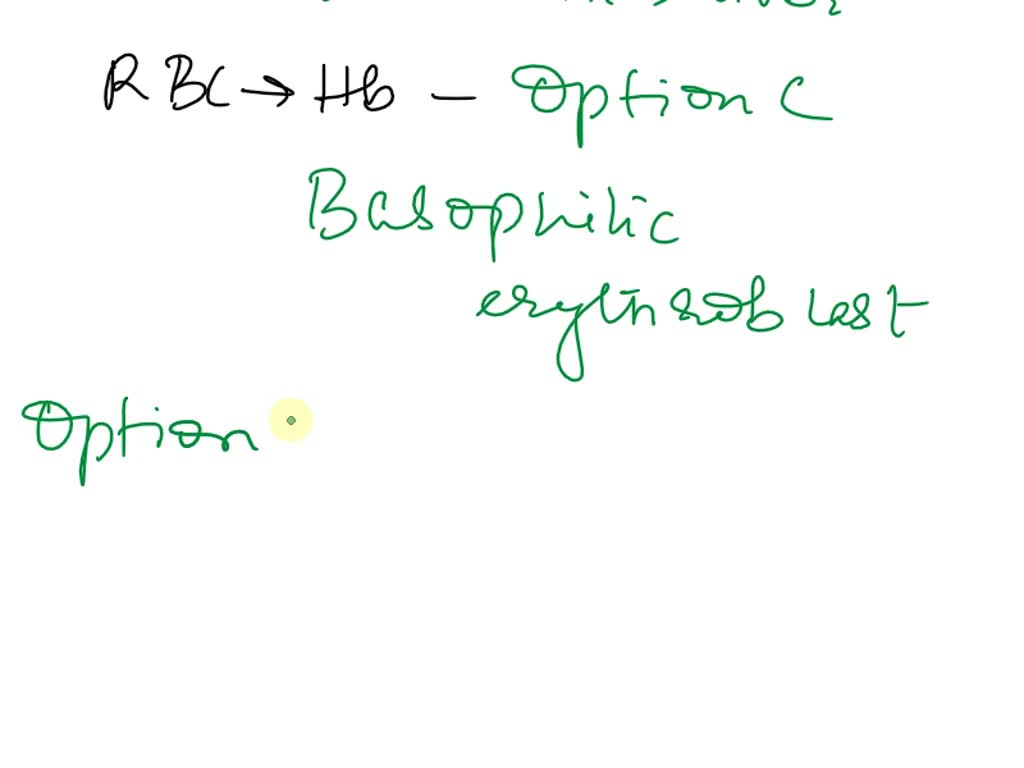 RBC → Hb – Option C
Basophilic
erythroblast
Option